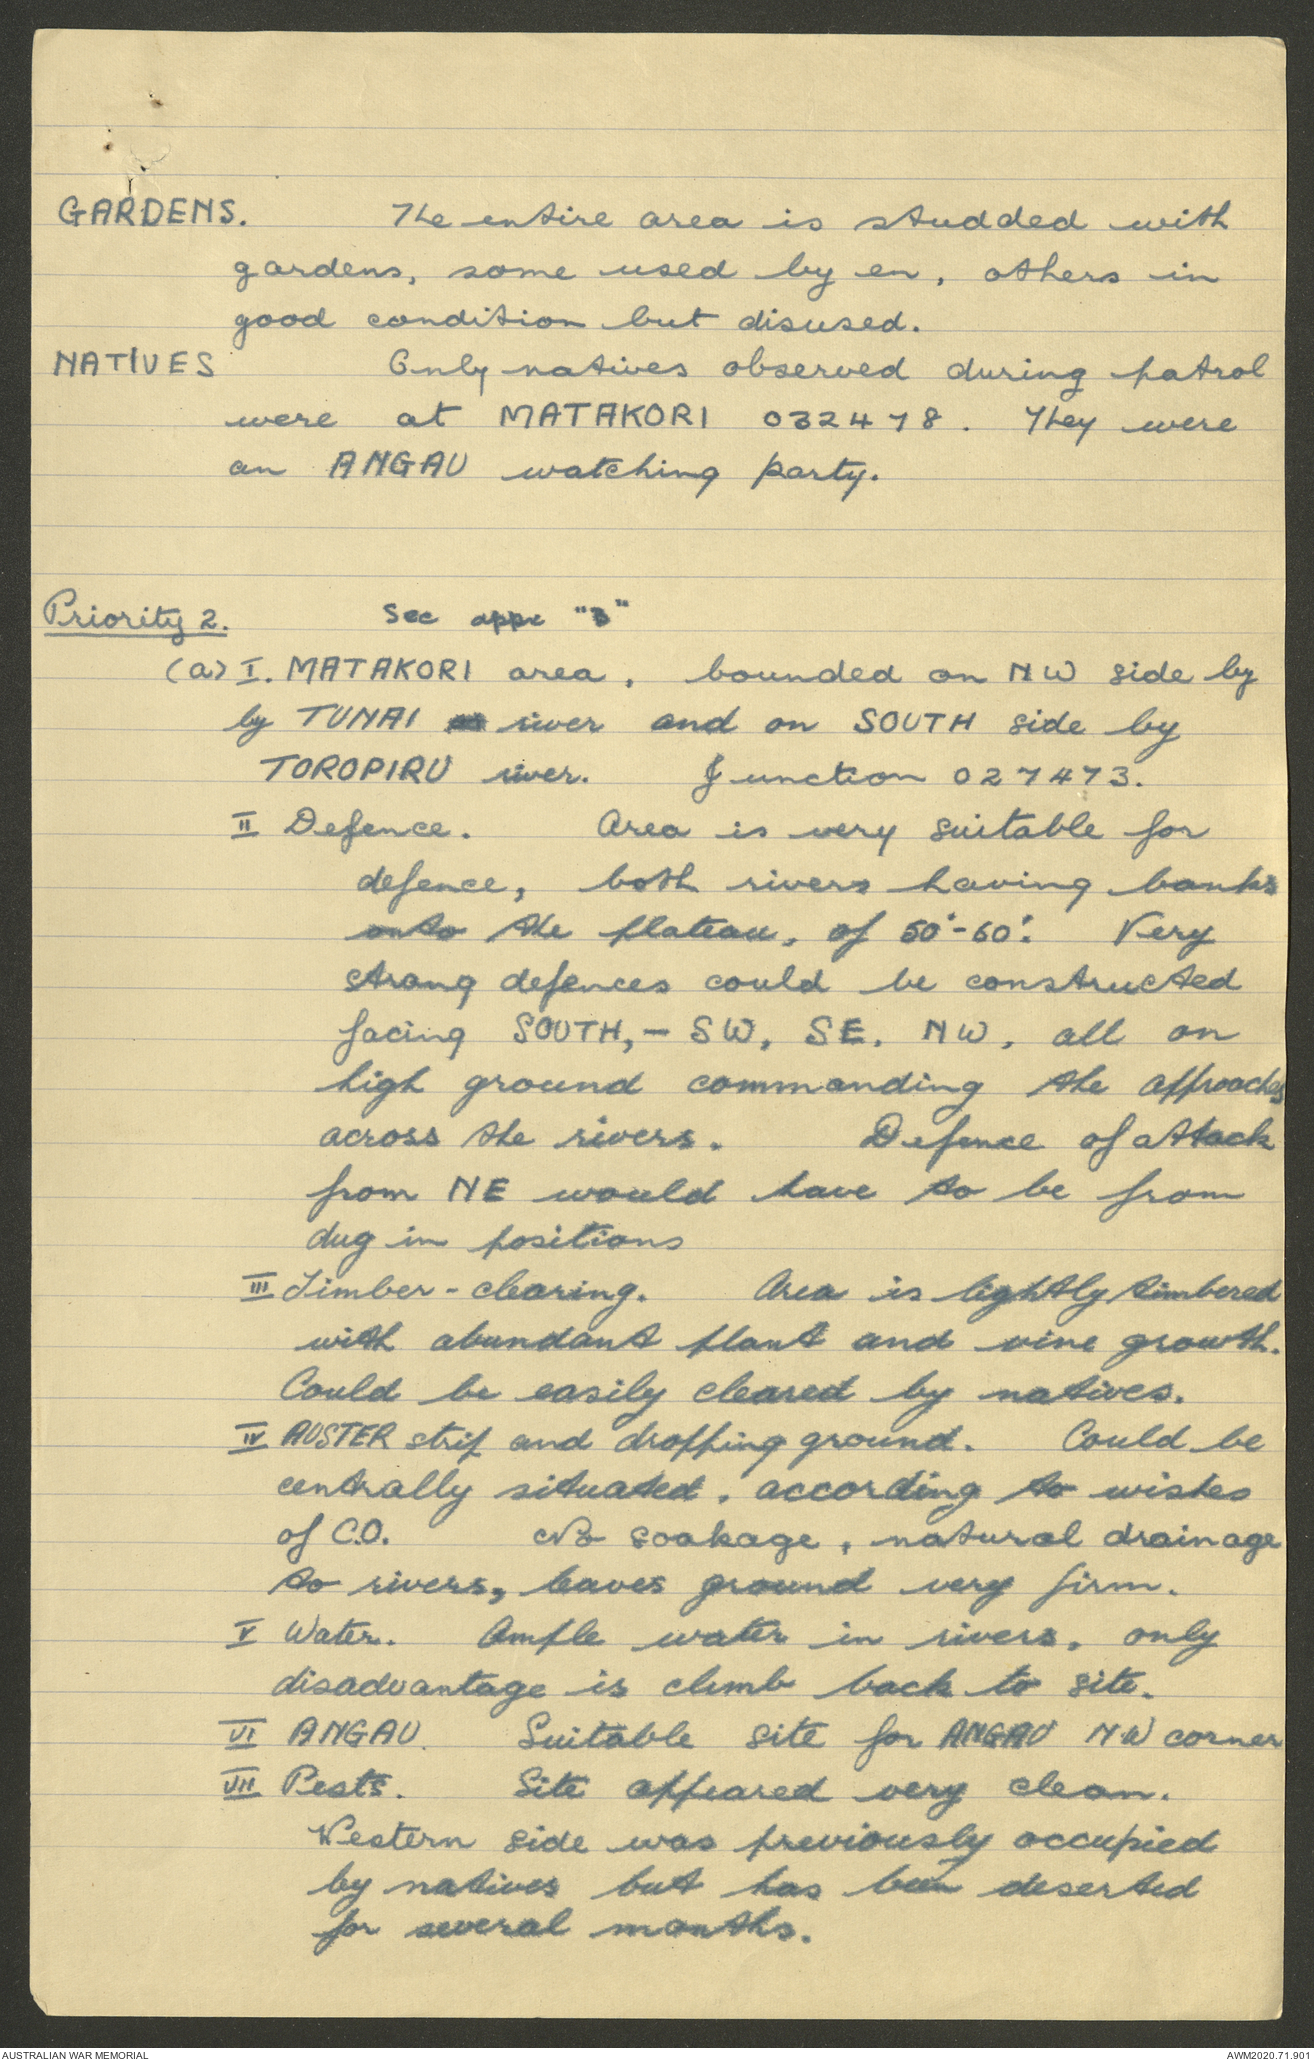 GARDENS. The entire area is studded with
gardens, some used by en, others in
good condition but disused.
NATIVES Only natives observed during patrol
were at MATAKORI 032478. They were
an ANGAU watching party.
Priority 2. See appx "B"
(a) I. MATAKORI area, bounded on NW side by
by TUNAI river and on SOUTH side by
TOROPIRU river. Junction 027473.
II Defence. Area is very suitable for
defence, both rivers having banks
onto the plateau, of 50'-60'. Very
strong defences could be constructed
facing SOUTH,- SW, SE, NW, all on
high ground commanding the approaches
across the rivers. Defence of attack
from NE would have to be from
dug in positions
III Timber-clearing. Area is lightly timbered
with abundant plant and vine growth.
Could be easily cleared by natives.
IV AUSTER strip and dropping ground. Could be
centrally situated, according to wishes
of C.O. No soakage, natural drainage
to rivers, leaves ground very firm.
V Water. Ample water in rivers, only
disadvantage is climb back to site.
VI ANGAU. Suitable site for ANGAU NW corner
VII Pests. Site appeared very clean.
Western side was previously occupied
by natives but has been deserted
for several months.
AUSTRALIAN WAR MEMORIAL
AWM2020.71.901